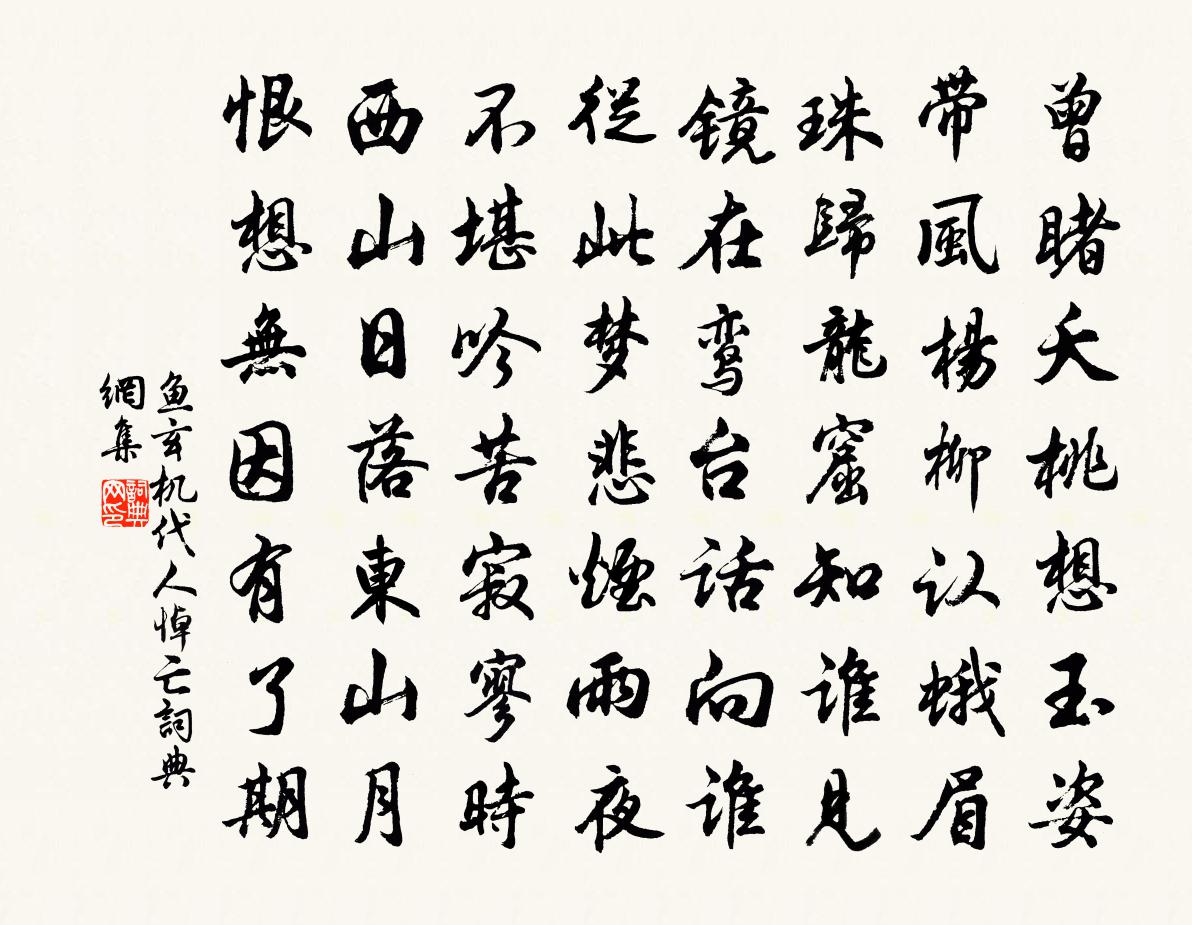 曾睹夭桃想玉姿
带風楊柳认蛾眉
珠歸龍窟知谁見
镜在鸾台话向谁
從此梦悲煙雨夜
不堪吟苦寂寥時
西山日落東山月
恨想無因有了期
鱼玄机代人悼亡詞典
網集
詞典
网印